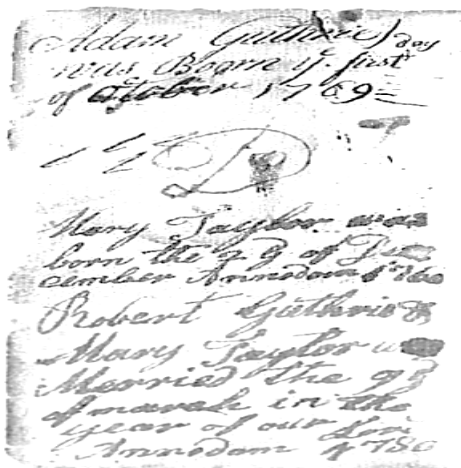 Adam Guthrie day
was Boorn ye first
of October 1769
Mary Taylor was
born the 29 of De
cember Annodom 1760
Robert Guthrie &
Mary Taylor was
Merried the 9
of march in the
year of our Lord
Annodom 1786